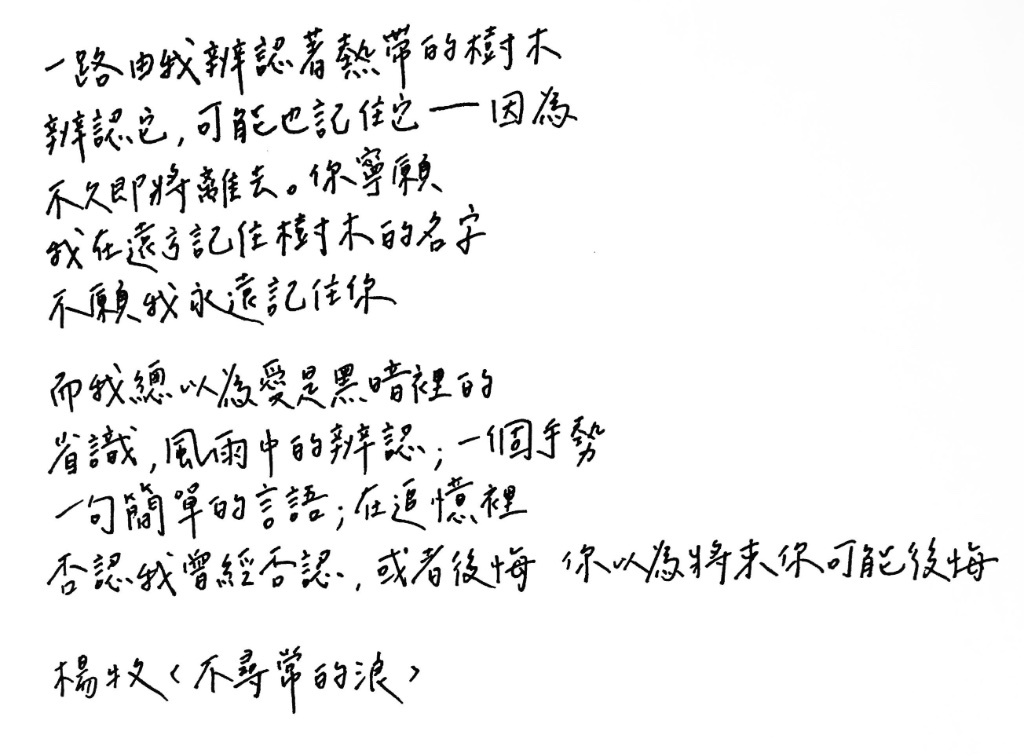 一路由我辨認著熱帶的樹木
辨認它，可能也記住它——因為
不久即將離去。你寧願
我在遠方記住樹木的名字
不願我永遠記住你
而我總以為愛是黑暗裡的
省識，風雨中的辨認；一個手勢
一句簡單的言語；在追憶裡
否認我曾經否認，或者後悔 你以為將來你可能後悔
楊牧〈不尋常的浪〉